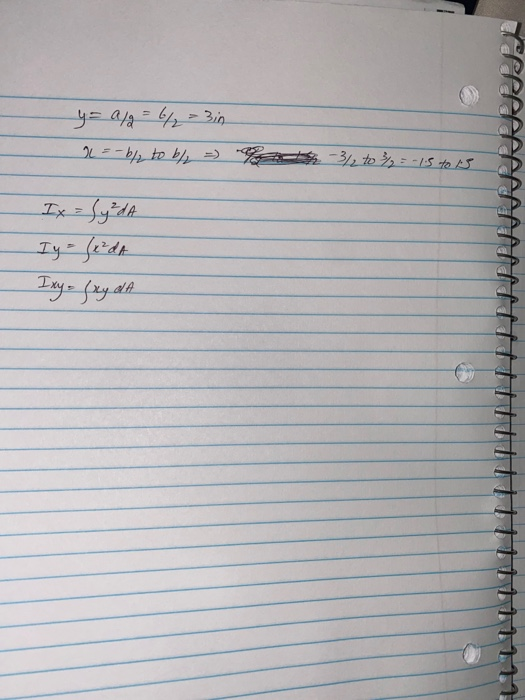 y = a/2 = 6/2 = 3in
x = -b/2 to b/2 => -3/2 to 3/2 = -1.5 to 1.5
Ix = ∫y²dA
Iy = ∫x²dA
Ixy = ∫xy dA